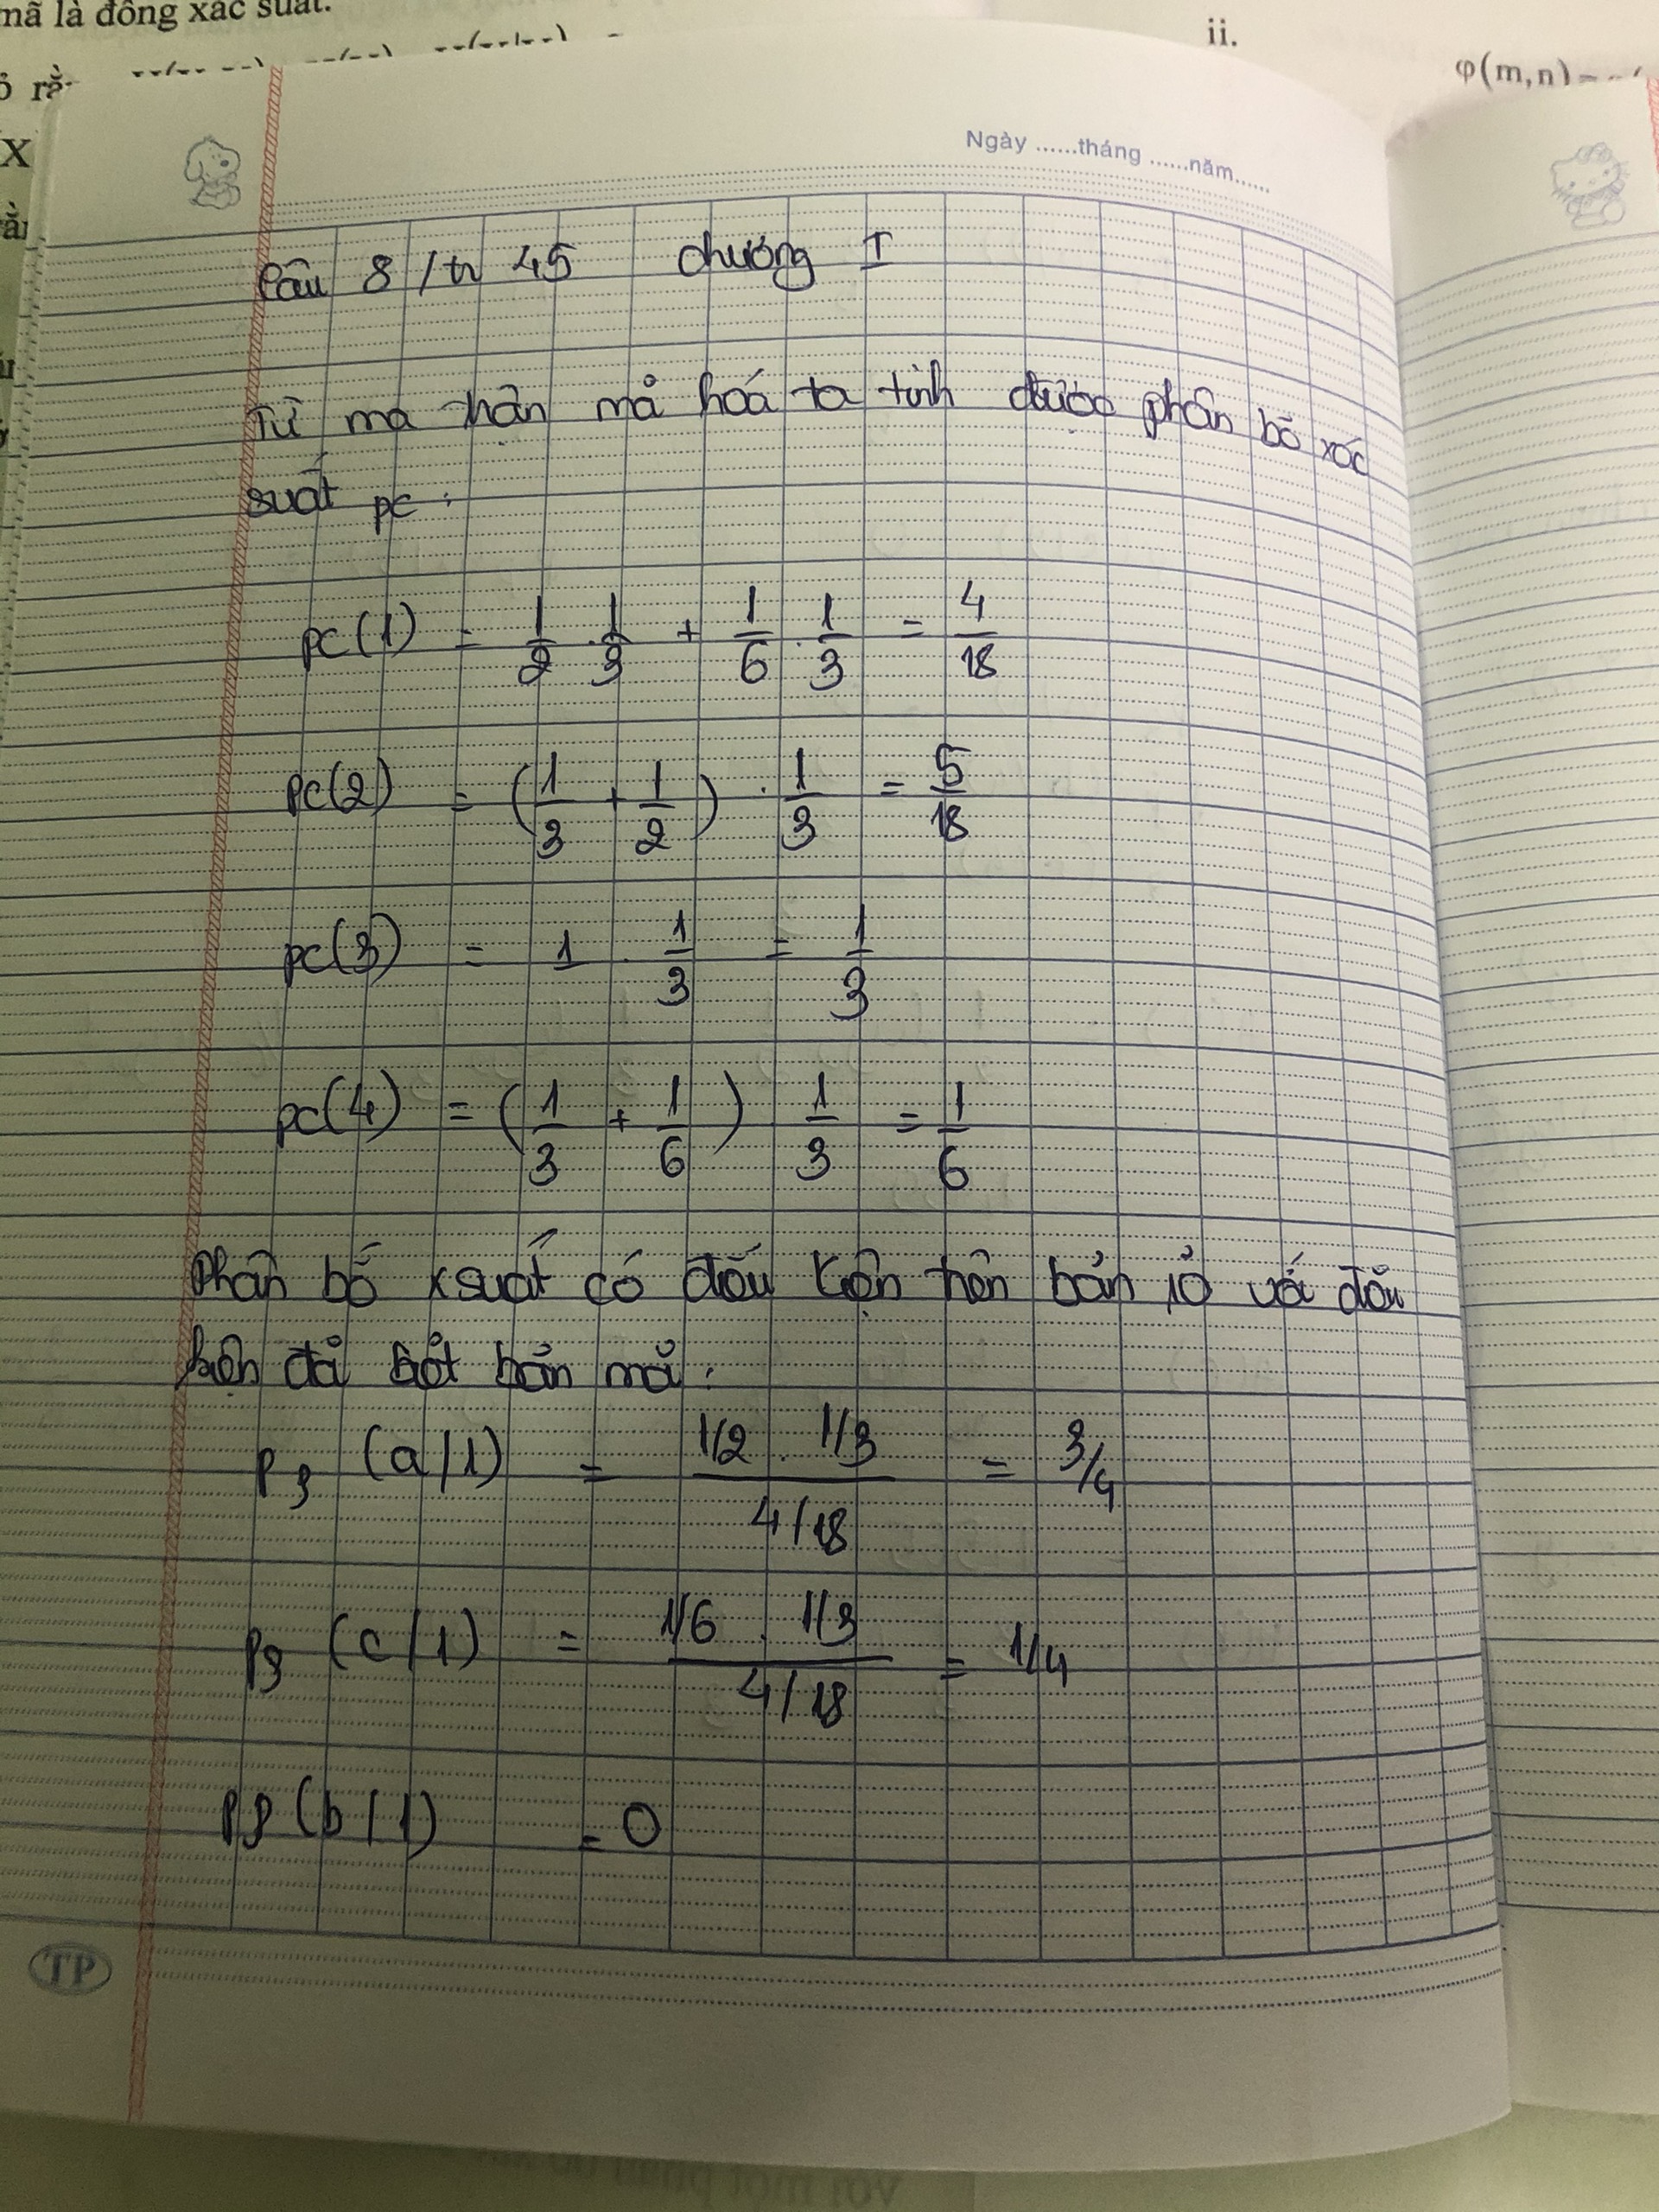 mã là đồng xác suất.
ii.
φ(m,n) =
X
Ngày ......tháng ......năm......
Câu 8 / tr 45 chương I
Từ ma trận mã hoá ta tính được phân bố xác
suất pc :
pc(1) = 1/2 . 1/3 + 1/6 . 1/3 = 4/18
pc(2) = (1/3 + 1/2) . 1/3 = 5/18
pc(3) = 1 . 1/3 = 1/3
pc(4) = (1/3 + 1/6) 1/3 = 1/6
Phân bố xsuất có điều kiện trên bản rõ với điều
kiện đã biết bản mã :
(a/1) = (1/2 . 1/3) / (4/18) = 3/4
(c/1) = (1/6 . 1/3) / (4/18) = 1/4
(b/1) = 0
TP
với một phần